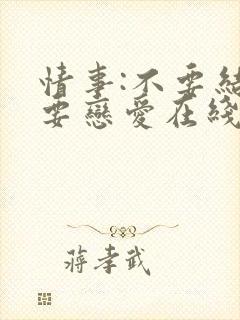 情事:不要結
要戀愛在綫
蔣孝武